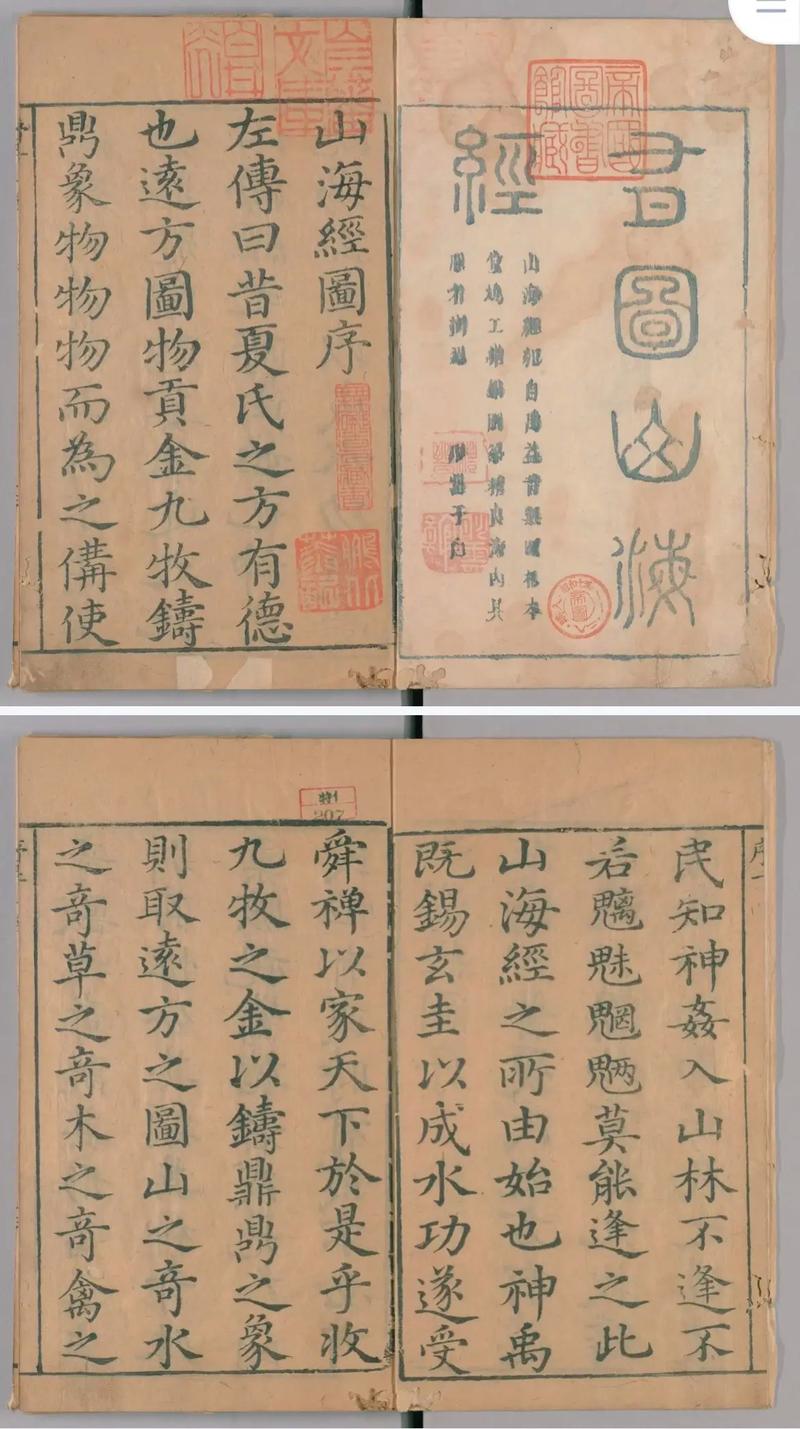 有圖山海
經
帝國
圖書
館藏
山海經圖序
左傳曰昔夏氏之方有德
也遠方圖物貢金九牧鑄
鼎象物物物而為之備使
民知神姦入山林不逢不
若魑魅魍魎莫能逢之此
山海經之所由始也神禹
既錫玄圭以成水功遂受
舜禪以家天下於是乎收
九牧之金以鑄鼎鼎之象
則取遠方之圖山之奇水
之奇草之奇木之奇禽之
特1
207